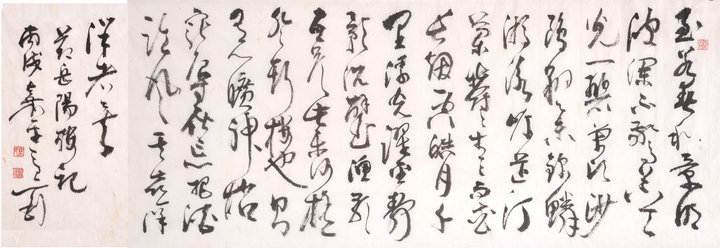 至若春和景明
波澜不惊上下天
光一碧万顷沙
鸥翔集锦鳞
游泳岸芷汀
兰郁郁青青而或
长烟一空皓月千
里浮光耀金静
影沉璧渔歌
互答此乐何极
登斯楼也则
有心旷神怡
宠辱偕忘把酒
临风其喜洋
洋者矣
节岳阳楼记
丙戌